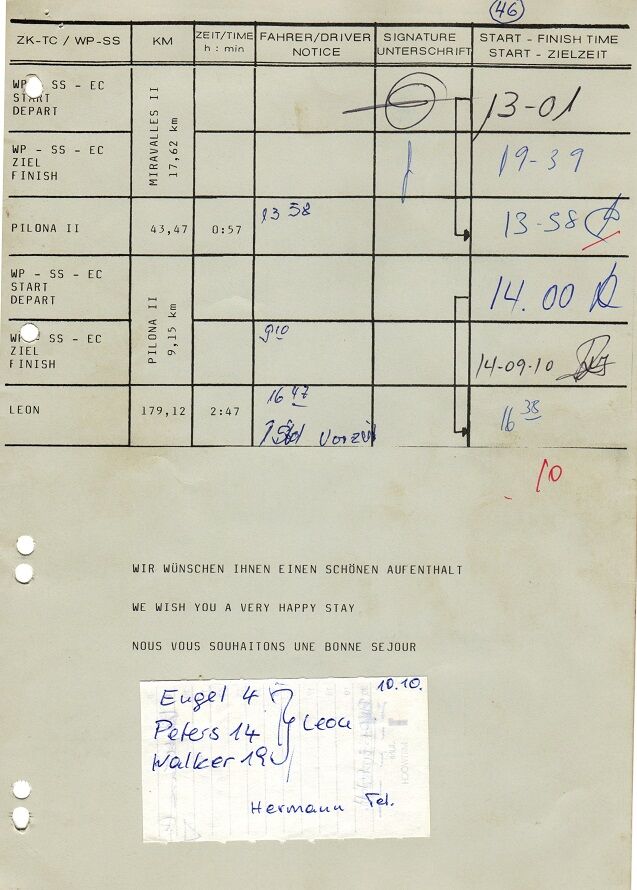 46
ZK-TC / WP-SS KM ZEIT/TIME h : min FAHRER/DRIVER NOTICE SIGNATURE UNTERSCHRIFT START - FINISH TIME START - ZIELZEIT
WP - SS - EC
START
DEPART
13-01
MIRAVALLES II
17,62 km
WP - SS - EC
ZIEL
FINISH
19-39
PILONA II 43,47 0:57 13 58 13-58
WP - SS - EC
START
DEPART
14.00
PILONA II
9,15 km
WP - SS - EC
ZIEL
FINISH
9 10
14-09.10
LEON 179,12 2:47 16 47 16 38
Vorzeit
10
WIR WÜNSCHEN IHNEN EINEN SCHÖNEN AUFENTHALT
WE WISH YOU A VERY HAPPY STAY
NOUS VOUS SOUHAITONS UNE BONNE SEJOUR
10.10.
Engel 4
Peters 14 Leon
Walker 19
Hermann Tel.